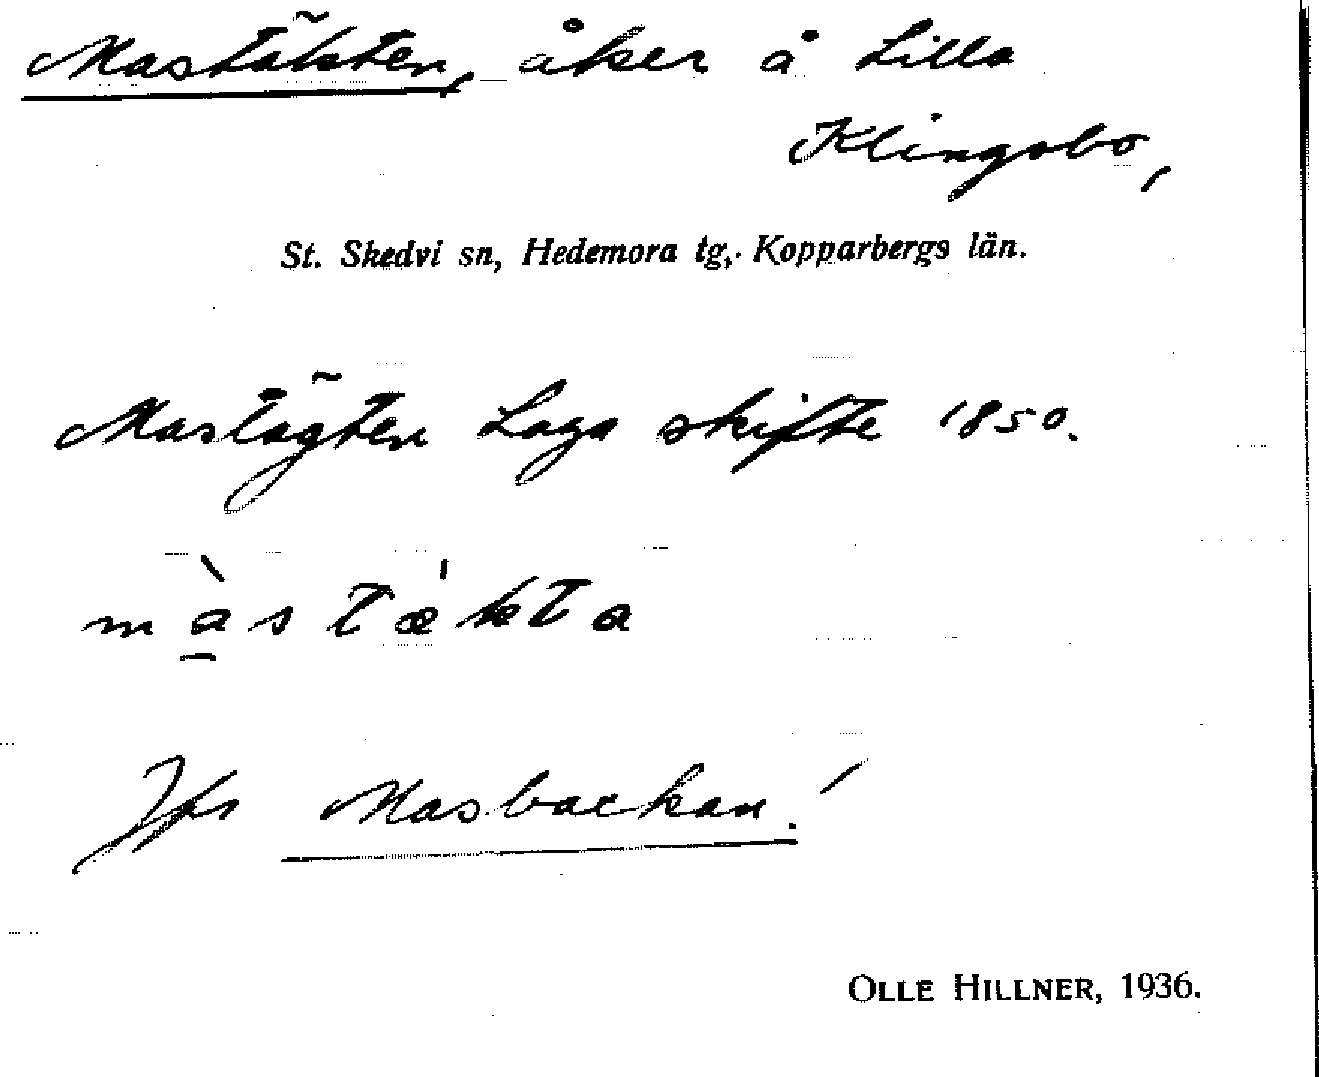 Mastäkten, åker å Lilla
Klingsbo,
St. Skedvi sn, Hedemora tg, Kopparbergs län.
Mastägten Laga skifte 1850.
màstækta
Jfr Masbackan!
OLLE HILLNER, 1936.